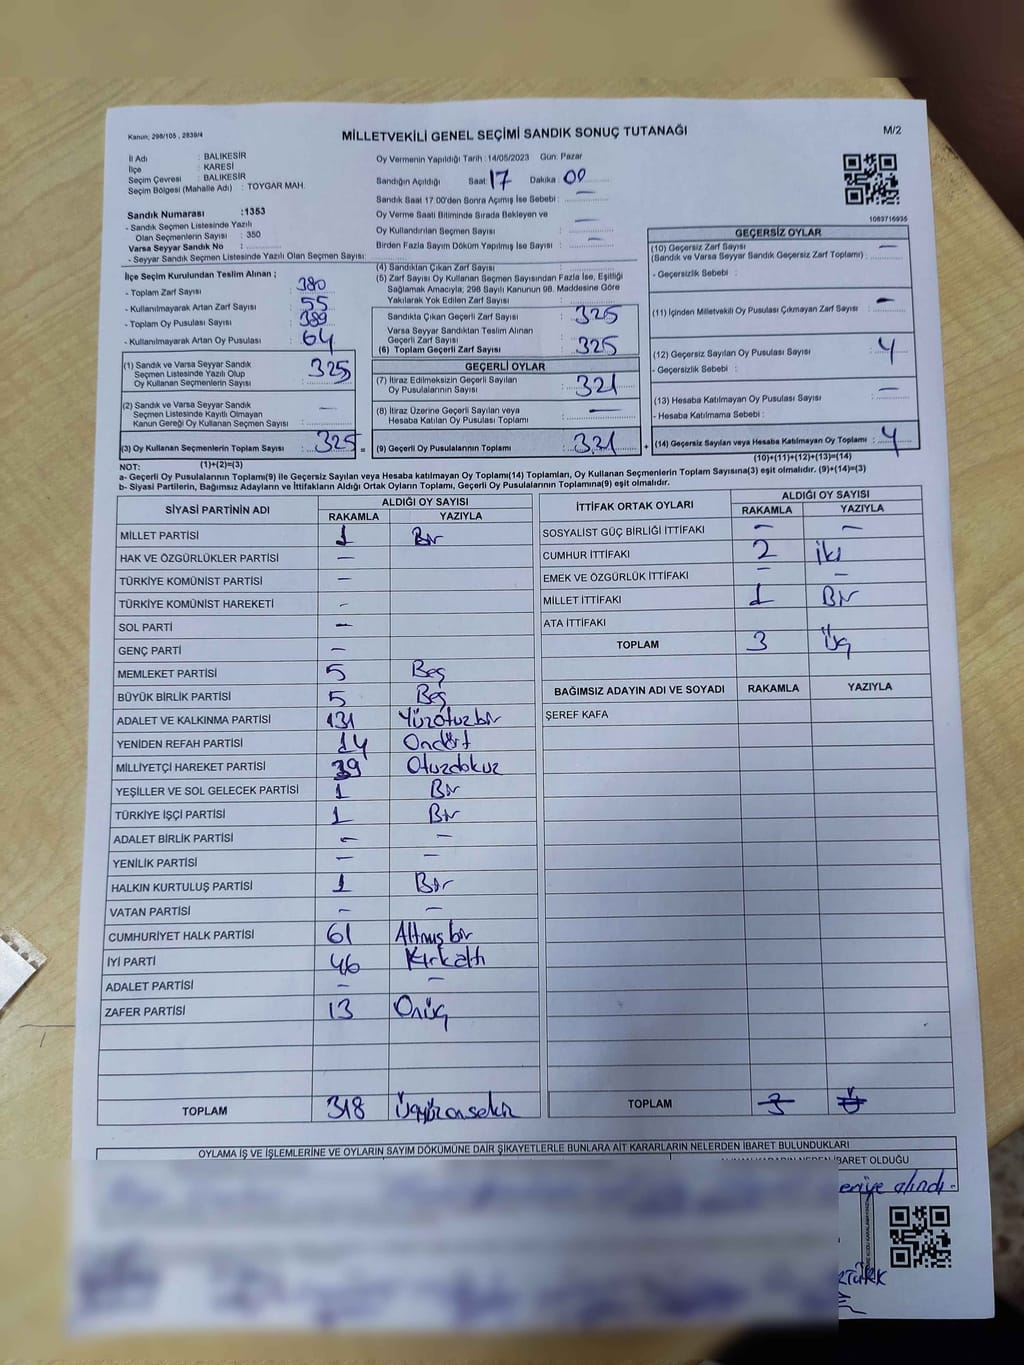 Kanun; 298/105 , 2839/4
MİLLETVEKİLİ GENEL SEÇİMİ SANDIK SONUÇ TUTANAĞI
M/2
İl Adı : BALIKESİR
İlçe : KARESİ
Seçim Çevresi : BALIKESİR
Seçim Bölgesi (Mahalle Adı) : TOYGAR MAH.
Sandık Numarası :1353
- Sandık Seçmen Listesinde Yazılı
Olan Seçmenlerin Sayısı : 350
Varsa Seyyar Sandık No :
- Seyyar Sandık Seçmen Listesinde Yazılı Olan Seçmen Sayısı:
Oy Vermenin Yapıldığı Tarih : 14/05/2023 Gün: Pazar
Sandığın Açıldığı Saat: 17 Dakika : 00
Sandık Saat 17.00'den Sonra Açımış İse Sebebi : —
Oy Verme Saati Bitiminde Sırada Bekleyen ve
Oy Kullandırılan Seçmen Sayısı : —
Birden Fazla Sayım Döküm Yapılmış İse Sayısı : —
1083716935
İlçe Seçim Kurulundan Teslim Alınan ;
- Toplam Zarf Sayısı : 380
- Kullanılmayarak Artan Zarf Sayısı : 55
- Toplam Oy Pusulası Sayısı : 389
- Kullanılmayarak Artan Oy Pusulası : 64
(1) Sandık ve Varsa Seyyar Sandık
Seçmen Listesinde Yazılı Olup
Oy Kullanan Seçmenlerin Sayısı : 325
(2) Sandık ve Varsa Seyyar Sandık
Seçmen Listesinde Kayıtlı Olmayan
Kanun Gereği Oy Kullanan Seçmen Sayısı : —
(3) Oy Kullanan Seçmenlerin Toplam Sayısı : 325 =
(4) Sandıktan Çıkan Zarf Sayısı :
(5) Zarf Sayısı Oy Kullanan Seçmen Sayısından Fazla İse, Eşitliği
Sağlamak Amacıyla; 298 Sayılı Kanunun 98. Maddesine Göre
Yakılarak Yok Edilen Zarf Sayısı :
Sandıkta Çıkan Geçerli Zarf Sayısı : 325
Varsa Seyyar Sandıktan Teslim Alınan
Geçerli Zarf Sayısı :
(6) Toplam Geçerli Zarf Sayısı : 325
GEÇERLİ OYLAR
(7) İtiraz Edilmeksizin Geçerli Sayılan
Oy Pusulalarının Sayısı : 321
(8) İtiraz Üzerine Geçerli Sayılan veya
Hesaba Katılan Oy Pusulası Toplamı : —
(9) Geçerli Oy Pusulalarının Toplamı : 321 +
GEÇERSİZ OYLAR
(10) Geçersiz Zarf Sayısı —
(Sandık ve Varsa Seyyar Sandık Geçersiz Zarf Toplamı) :
- Geçersizlik Sebebi :
(11) İçinden Milletvekili Oy Pusulası Çıkmayan Zarf Sayısı : —
(12) Geçersiz Sayılan Oy Pusulası Sayısı : 4
- Geçersizlik Sebebi :
(13) Hesaba Katılmayan Oy Pusulası Sayısı : —
- Hesaba Katılmama Sebebi :
(14) Geçersiz Sayılan veya Hesaba Katılmayan Oy Toplamı : 4
NOT: (1)+(2)=(3) (10)+(11)+(12)+(13)=(14)
a- Geçerli Oy Pusulalarının Toplamı(9) ile Geçersiz Sayılan veya Hesaba katılmayan Oy Toplamı(14) Toplamları, Oy Kullanan Seçmenlerin Toplam Sayısına(3) eşit olmalıdır. (9)+(14)=(3)
b- Siyasi Partilerin, Bağımsız Adayların ve İttifakların Aldığı Ortak Oyların Toplamı, Geçerli Oy Pusulalarının Toplamına(9) eşit olmalıdır.
SİYASİ PARTİNİN ADI ALDIĞI OY SAYISI
RAKAMLA YAZIYLA
MİLLET PARTİSİ 1 Bir
HAK VE ÖZGÜRLÜKLER PARTİSİ —
TÜRKİYE KOMÜNİST PARTİSİ —
TÜRKİYE KOMÜNİST HAREKETİ —
SOL PARTİ —
GENÇ PARTİ —
MEMLEKET PARTİSİ 5 Beş
BÜYÜK BİRLİK PARTİSİ 5 Beş
ADALET VE KALKINMA PARTİSİ 131 Yüzotuzbir
YENİDEN REFAH PARTİSİ 14 Ondört
MİLLİYETÇİ HAREKET PARTİSİ 39 Otuzdokuz
YEŞİLLER VE SOL GELECEK PARTİSİ 1 Bir
TÜRKİYE İŞÇİ PARTİSİ 1 Bir
ADALET BİRLİK PARTİSİ — —
YENİLİK PARTİSİ — —
HALKIN KURTULUŞ PARTİSİ 1 Bir
VATAN PARTİSİ — —
CUMHURİYET HALK PARTİSİ 61 Altmışbir
İYİ PARTİ 46 Kırkaltı
ADALET PARTİSİ — —
ZAFER PARTİSİ 13 Onüç
TOPLAM 318 Üçyüzonsekiz
İTTİFAK ORTAK OYLARI ALDIĞI OY SAYISI
RAKAMLA YAZIYLA
SOSYALİST GÜÇ BİRLİĞİ İTTİFAKI — —
CUMHUR İTTİFAKI 2 iki
EMEK VE ÖZGÜRLÜK İTTİFAKI — —
MİLLET İTTİFAKI 1 Bir
ATA İTTİFAKI
TOPLAM 3 Üç
BAĞIMSIZ ADAYIN ADI VE SOYADI RAKAMLA YAZIYLA
ŞEREF KAFA
TOPLAM 3
OYLAMA İŞ VE İŞLEMLERİNE VE OYLARIN SAYIM DÖKÜMÜNE DAİR ŞİKAYETLERLE BUNLARA AİT KARARLARIN NELERDEN İBARET BULUNDUKLARI
İBARET OLDUĞU
alındı.